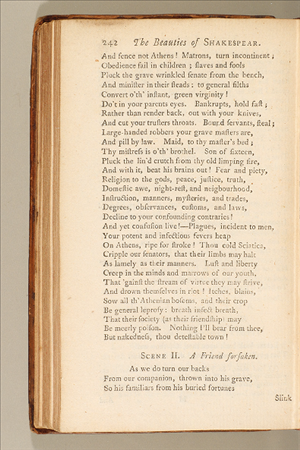 242 The Beauties of SHAKESPEAR.
And fence not Athens! Matrons, turn incontinent;
Obedience fail in children; slaves and fools
Pluck the grave wrinkled senate from the bench,
And minister in their steads: to general filths
Convert o'th' instant, green virginity!
Do't in your parents eyes. Bankrupts, hold fast;
Rather than render back, out with your knives,
And cut your trusters throats. Bound servants, steal;
Large-handed robbers your grave masters are,
And pill by law. Maid, to thy master's bed;
Thy mistress is o'th' brothel. Son of sixteen,
Pluck the lin'd crutch from thy old limping sire,
And with it, beat his brains out! Fear and piety,
Religion to the gods, peace, justice, truth,
Domestic awe, night-rest, and neigbourhood,
Instruction, manners, mysteries, and trades,
Degrees, observances, customs, and laws,
Decline to your confounding contraries!
And yet confusion live!—Plagues, incident to men,
Your potent and infectious fevers heap
On Athens, ripe for stroke! Thou cold Sciatica,
Cripple our senators, that their limbs may halt
As lamely as their manners. Lust and liberty
Creep in the minds and marrows of our youth,
That 'gainst the stream of virtue they may strive,
And drown themselves in riot! Itches, blains,
Sow all th' Athenian bosoms, and their crop
Be general leprosy: breath infect breath,
That their society (as their friendship) may
Be meerly poison. Nothing I'll bear from thee,
But nakedness, thou detestable town!
SCENE II. A Friend forsaken.
As we do turn our backs
From our companion, thrown into his grave,
So his familiars from his buried fortunes
Slink